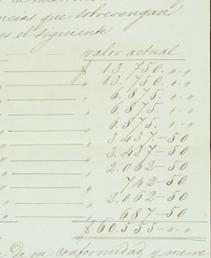 ncias que sobrevengan
es el siguiente
valor actual
" $ 13.750. " "
" 13.750. " "
" 6.875. " "
" 6.875. " "
" 6.875. " "
" 3.437-50
" 3.437-50
" 2.062-50
" 742-50
" 2.062-50
" 687-50
$ 60.555 " "
de su conformidad y